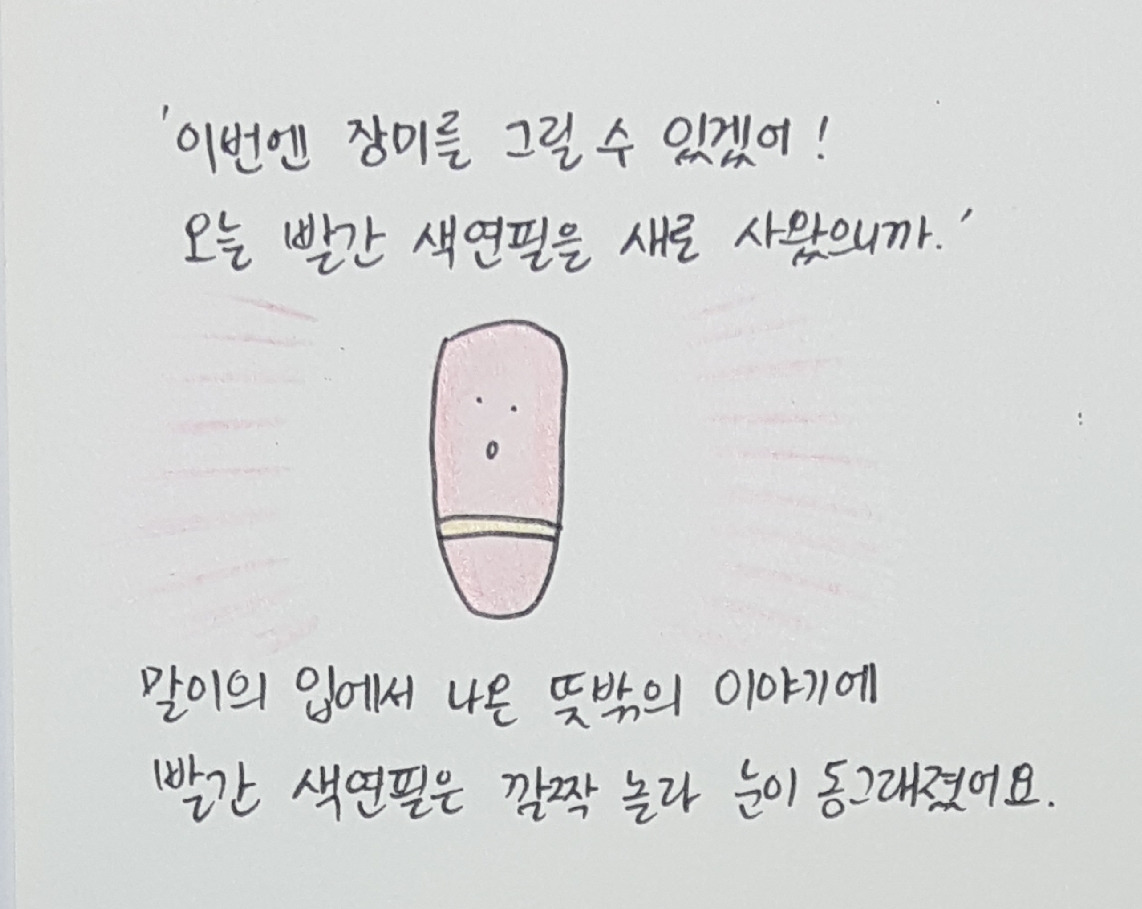 '이번엔 장미를 그릴 수 있겠어!
오늘 빨간 색연필을 새로 사왔으니까.'
말이의 입에서 나온 뜻밖의 이야기에
빨간 색연필은 깜짝 놀라 눈이 동그래졌어요.